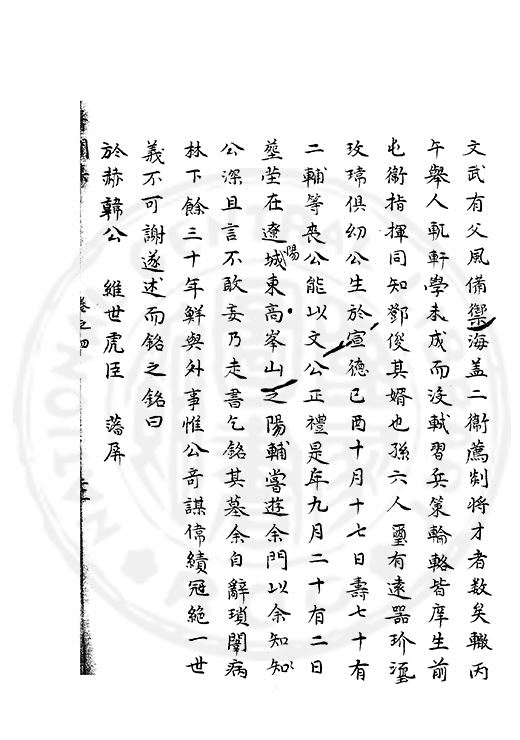 文武有父風備禦海盖二衛薦剡将才者数矣轍丙
午舉人軏軒學未成而沒軾習兵策輪輅皆庠生前
屯衛指揮同知鄧俊其婿也孫六人璽有遠器玠𤪌
玫㻛俱幼公生於宣德己酉十月十七日壽七十有
二輔等丧公能以文公正禮是年九月二十有二日
塟塋在遼陽城東高峯山之陽輔嘗遊余門以余知知
公深且言不敢妄乃走書乞銘其墓余自辭瑣闈病
林下餘三十年鮮與外事惟公竒謀偉績冠絶一世
義不可謝遂述而銘之銘曰
於赫韓公 維世虎臣 藩屏
卷之四